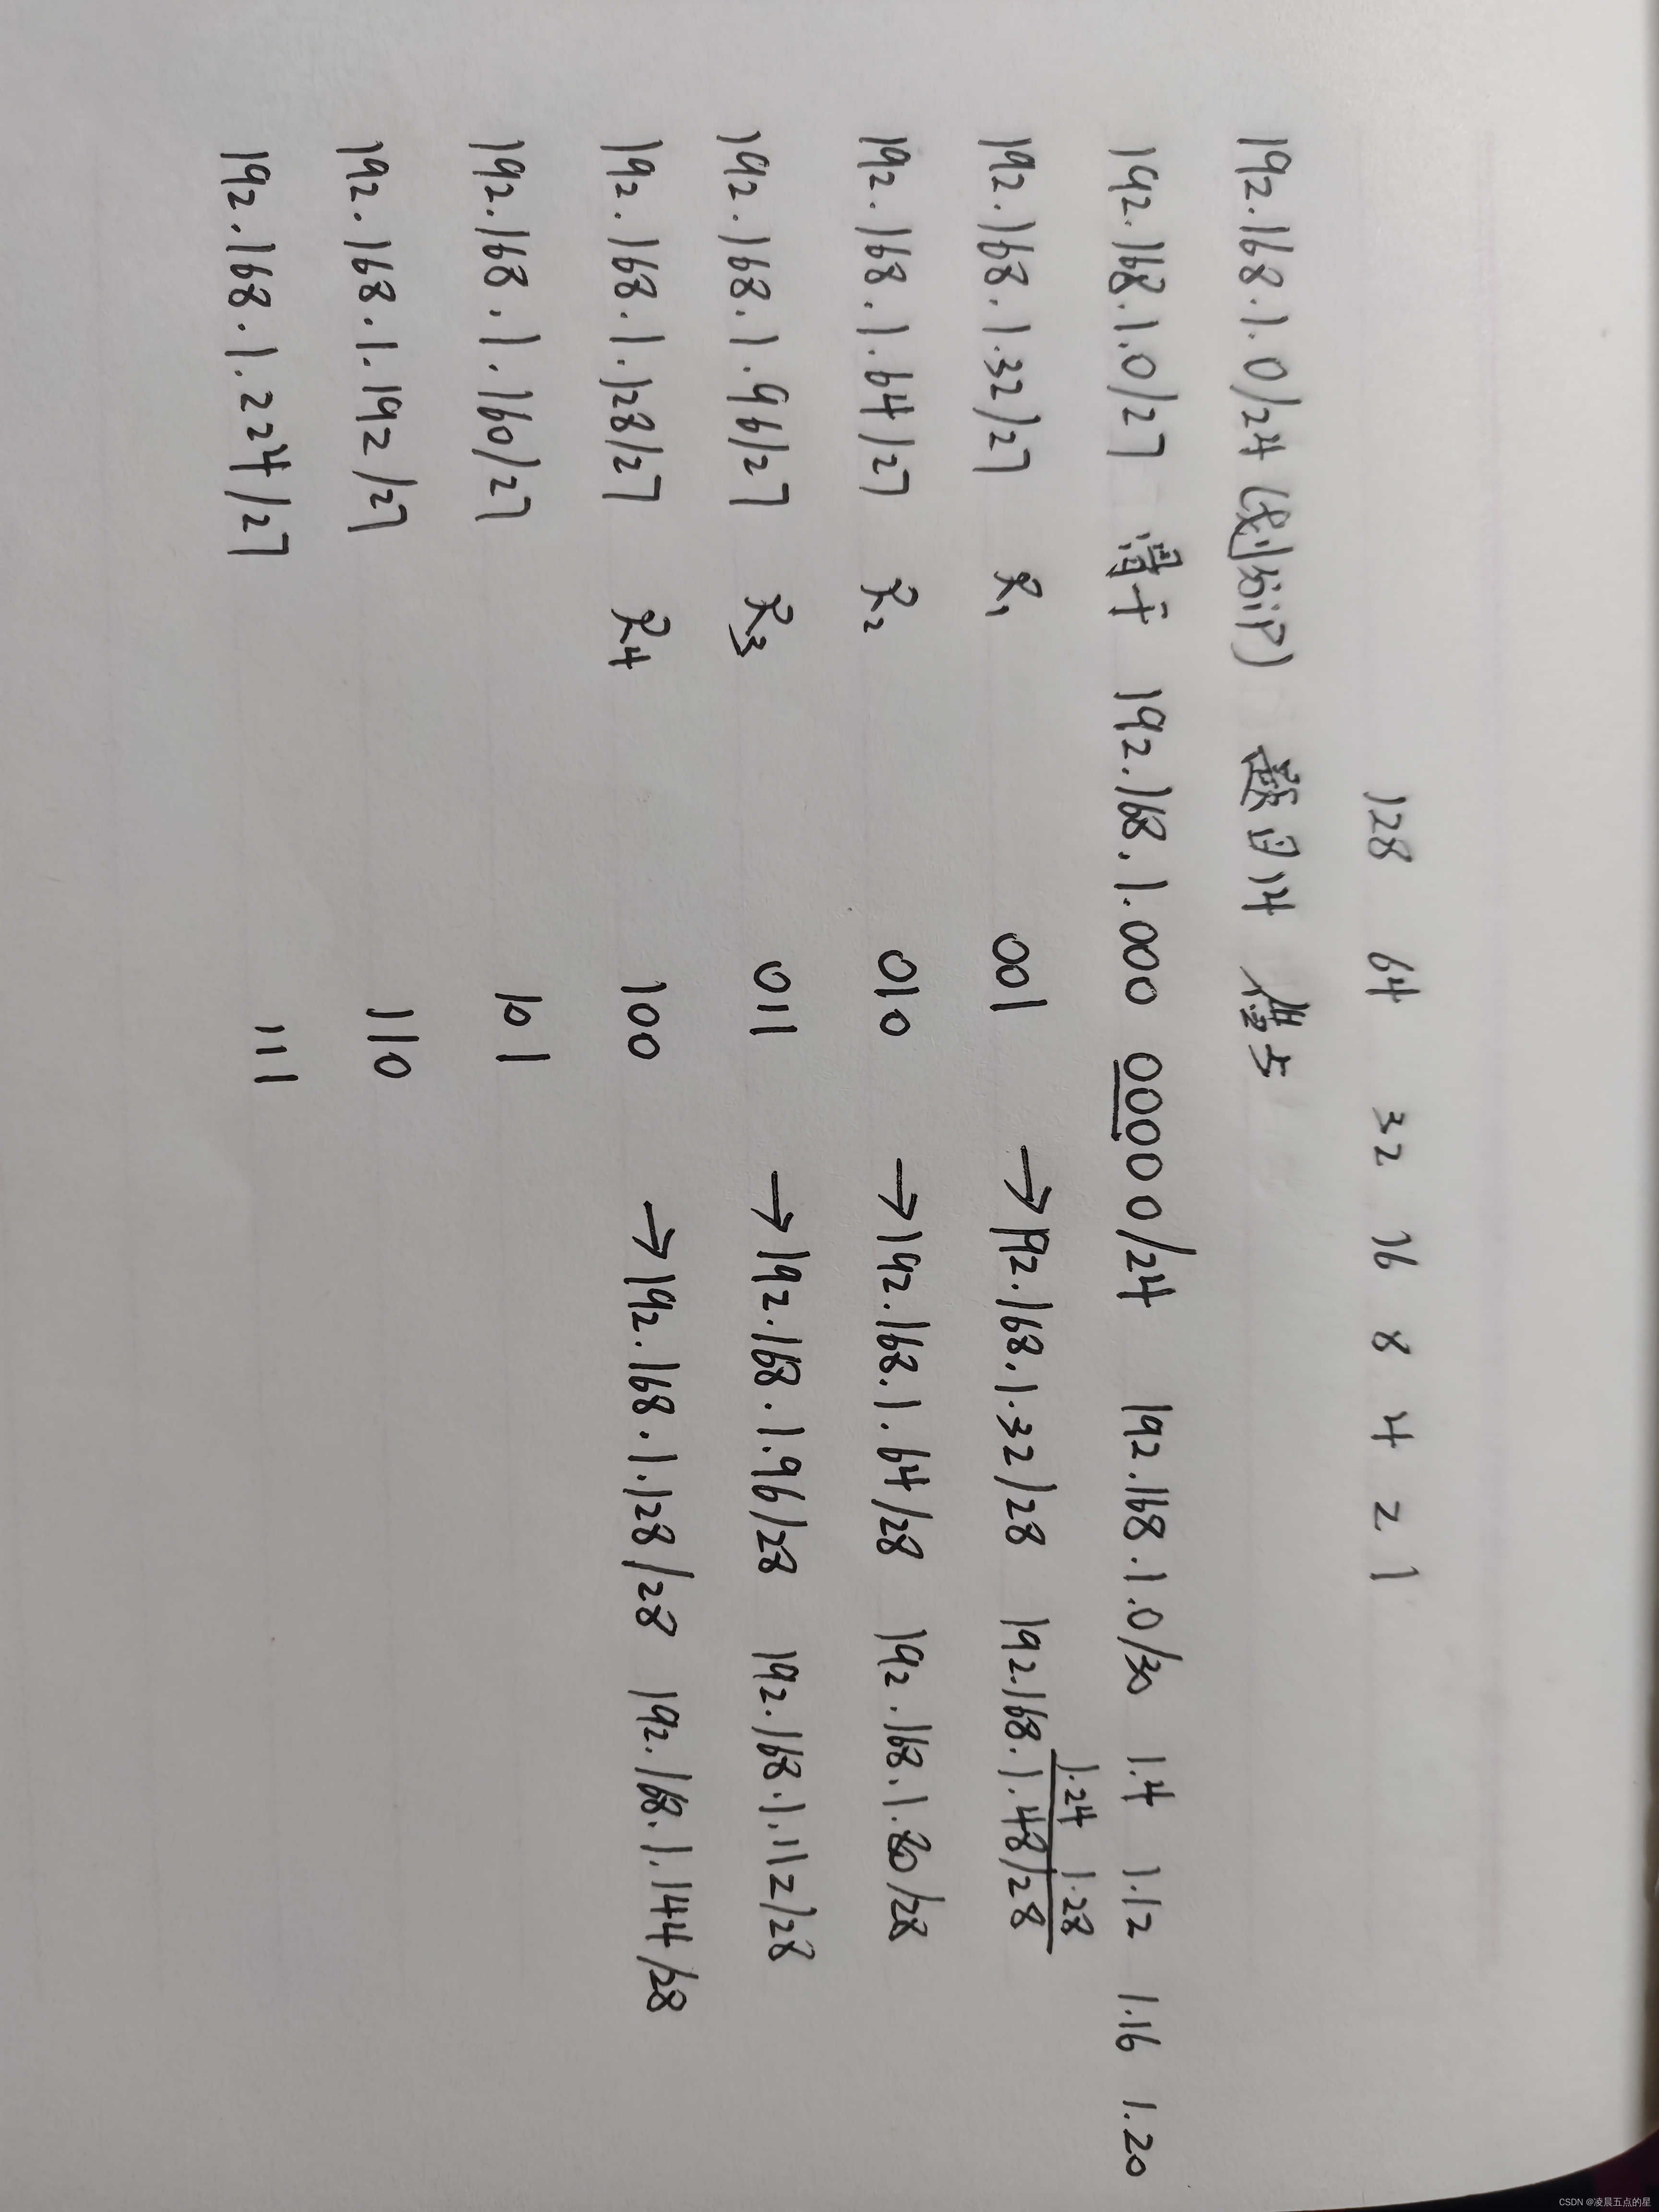 128 64 32 16 8 4 2 1
192.168.1.0/24 (划分iP) 数目14 借5
192.168.1.0/27 骨干 192.168.1.000 00000/24 192.168.1.0/30 1.4 1.12 1.16 1.20
1.24 1.28
192.168.1.32/27 R1 001 →192.168.1.32/28 192.168.1.48/28
192.168.1.64/27 R2 010 →192.168.1.64/28 192.168.1.80/28
192.168.1.96/27 R3 011 →192.168.1.96/28 192.168.1.112/28
192.168.1.128/27 R4 100 →192.168.1.128/28 192.168.1.144/28
192.168.1.160/27 101
192.168.1.192/27 110
192.168.1.224/27 111
CSDN @凌晨五点的星